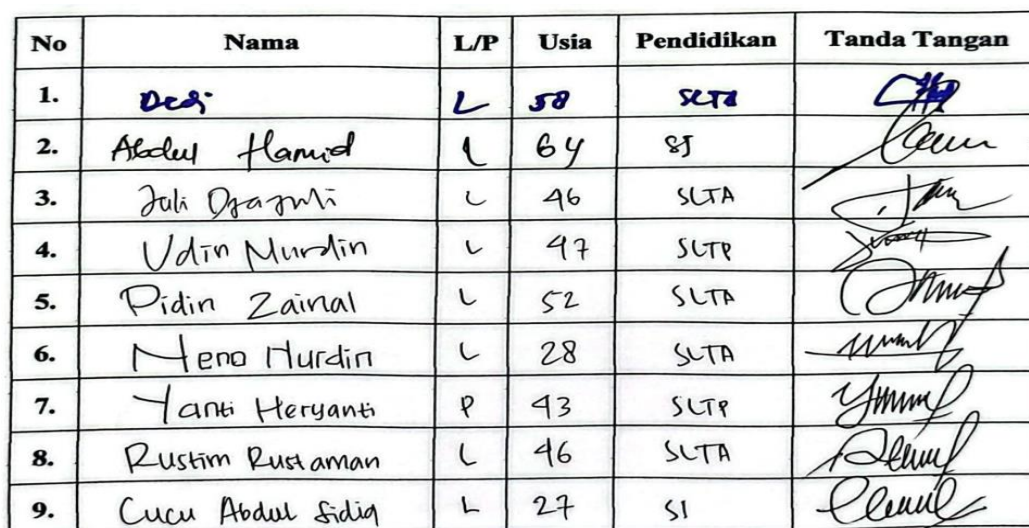 No Nama L/P Usia Pendidikan Tanda Tangan
1. Dedi L 58 SLTA
2. Abdul Hamid L 64 S1
3. Juli L 46 SLTA
4. Udin Nurdin L 47 SLTP
5. Pidin Zainal L 52 SLTA
6. Neno Nurdin L 28 SLTA
7. Yanti Heryanti P 43 SLTP
8. Rustim Rustaman L 46 SLTA
9. Cucu Abdul Sidiq L 27 S1